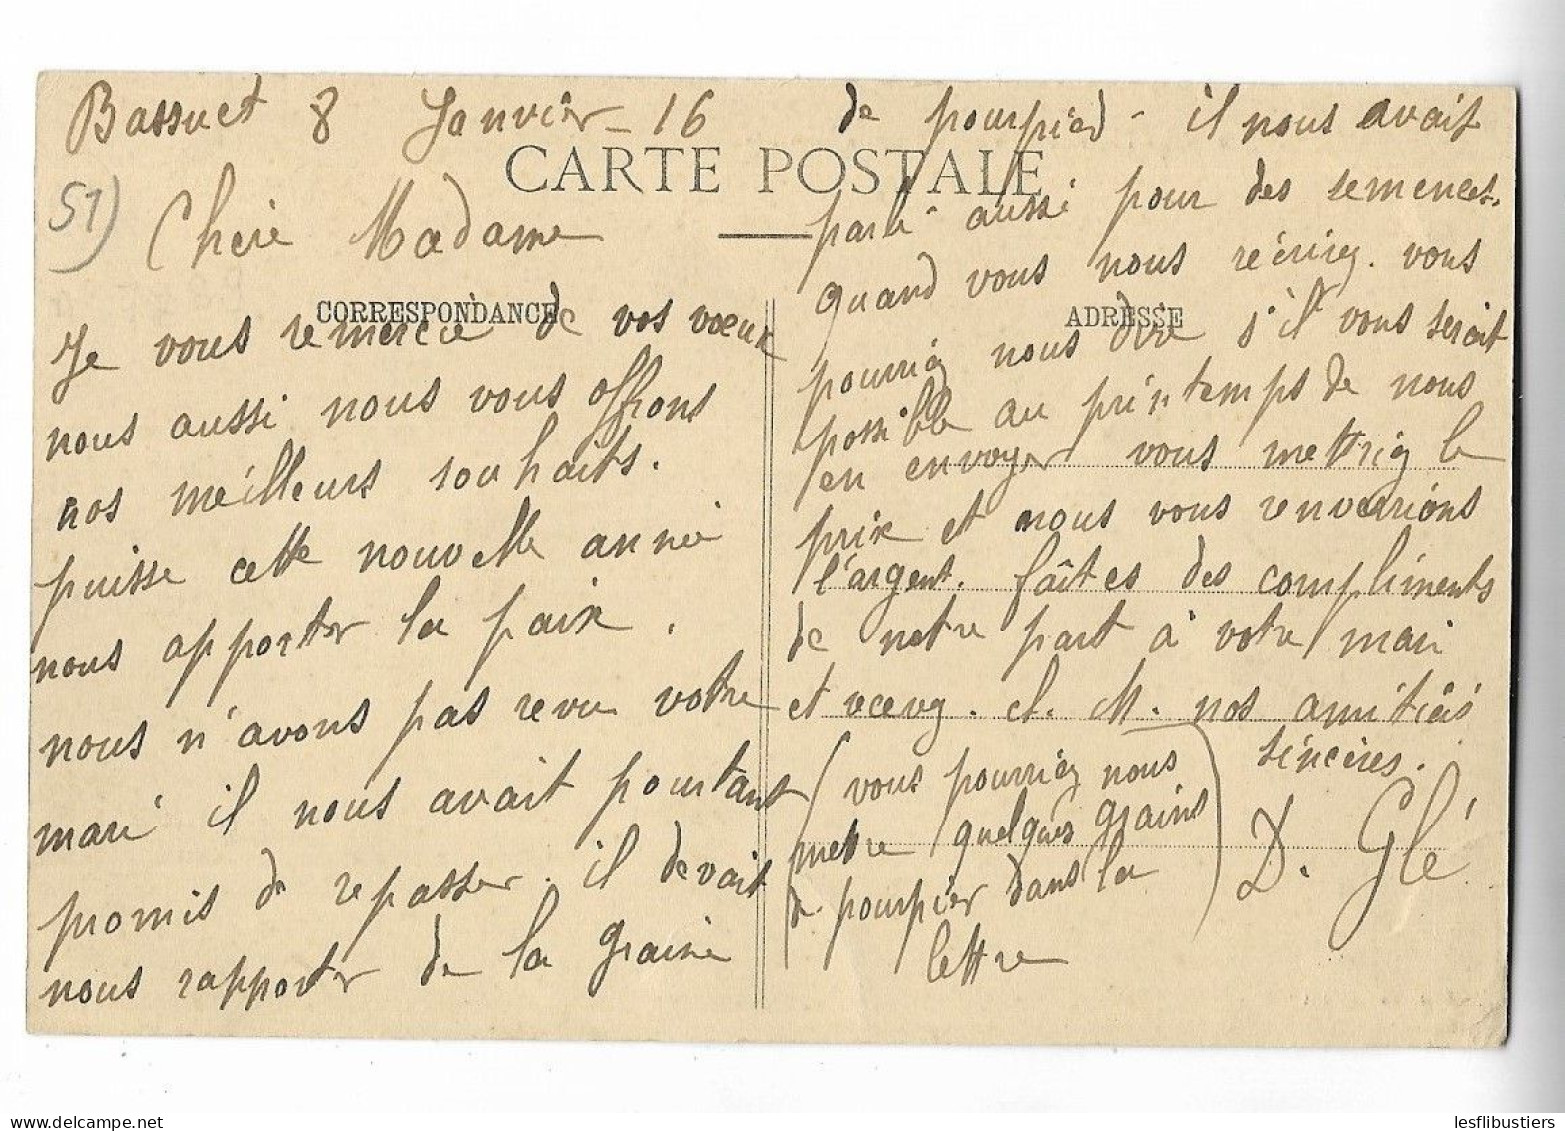 Bassuet 8 Janvier - 16
CARTE POSTALE
51)
Chère Madame
CORRESPONDANCE
Je vous remercie de vos voeux
nous aussi nous vous offrons
nos meilleurs souhaits.
puisse cette nouvelle année
nous apporter la paix.
nous n'avons pas revu votre
mari il nous avait pourtant
promis de repasser. il devait
nous rapporter de la graine
de pourpied - il nous avait
parlé aussi pour des semences.
quand vous nous récrirez. vous
ADRESSE
pourriez nous dire s'il vous serait
possible au printemps de nous
en envoyer vous mettriez le
prix et nous vous renverrions
l'argent. faîtes des compliments
de notre part à votre mari
et recevez. ch. M. nos amitiés
sincères.
(vous pourriez nous
metre quelques grains
de pourpier dans la
lettre
D. Glé
lesflibustiers